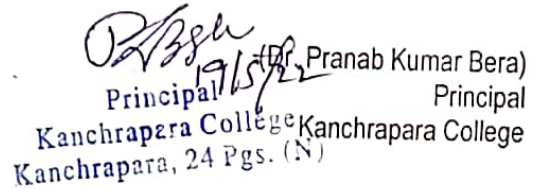 19/5/22
(Dr. Pranab Kumar Bera)
Principal
Kanchrapara College
Principal
Kanchrapara College
Kanchrapara, 24 Pgs. (N)